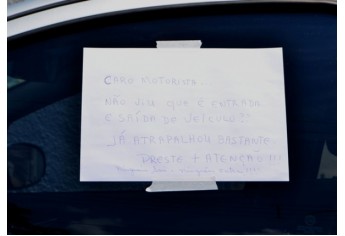 CARO MOTORISTA.
NÃO VIU QUE É ENTRADA
E SAÍDA DE VEÍCULO??
JÁ ATRAPALHOU BASTANTE
PRESTE + ATENÇÃO!!!